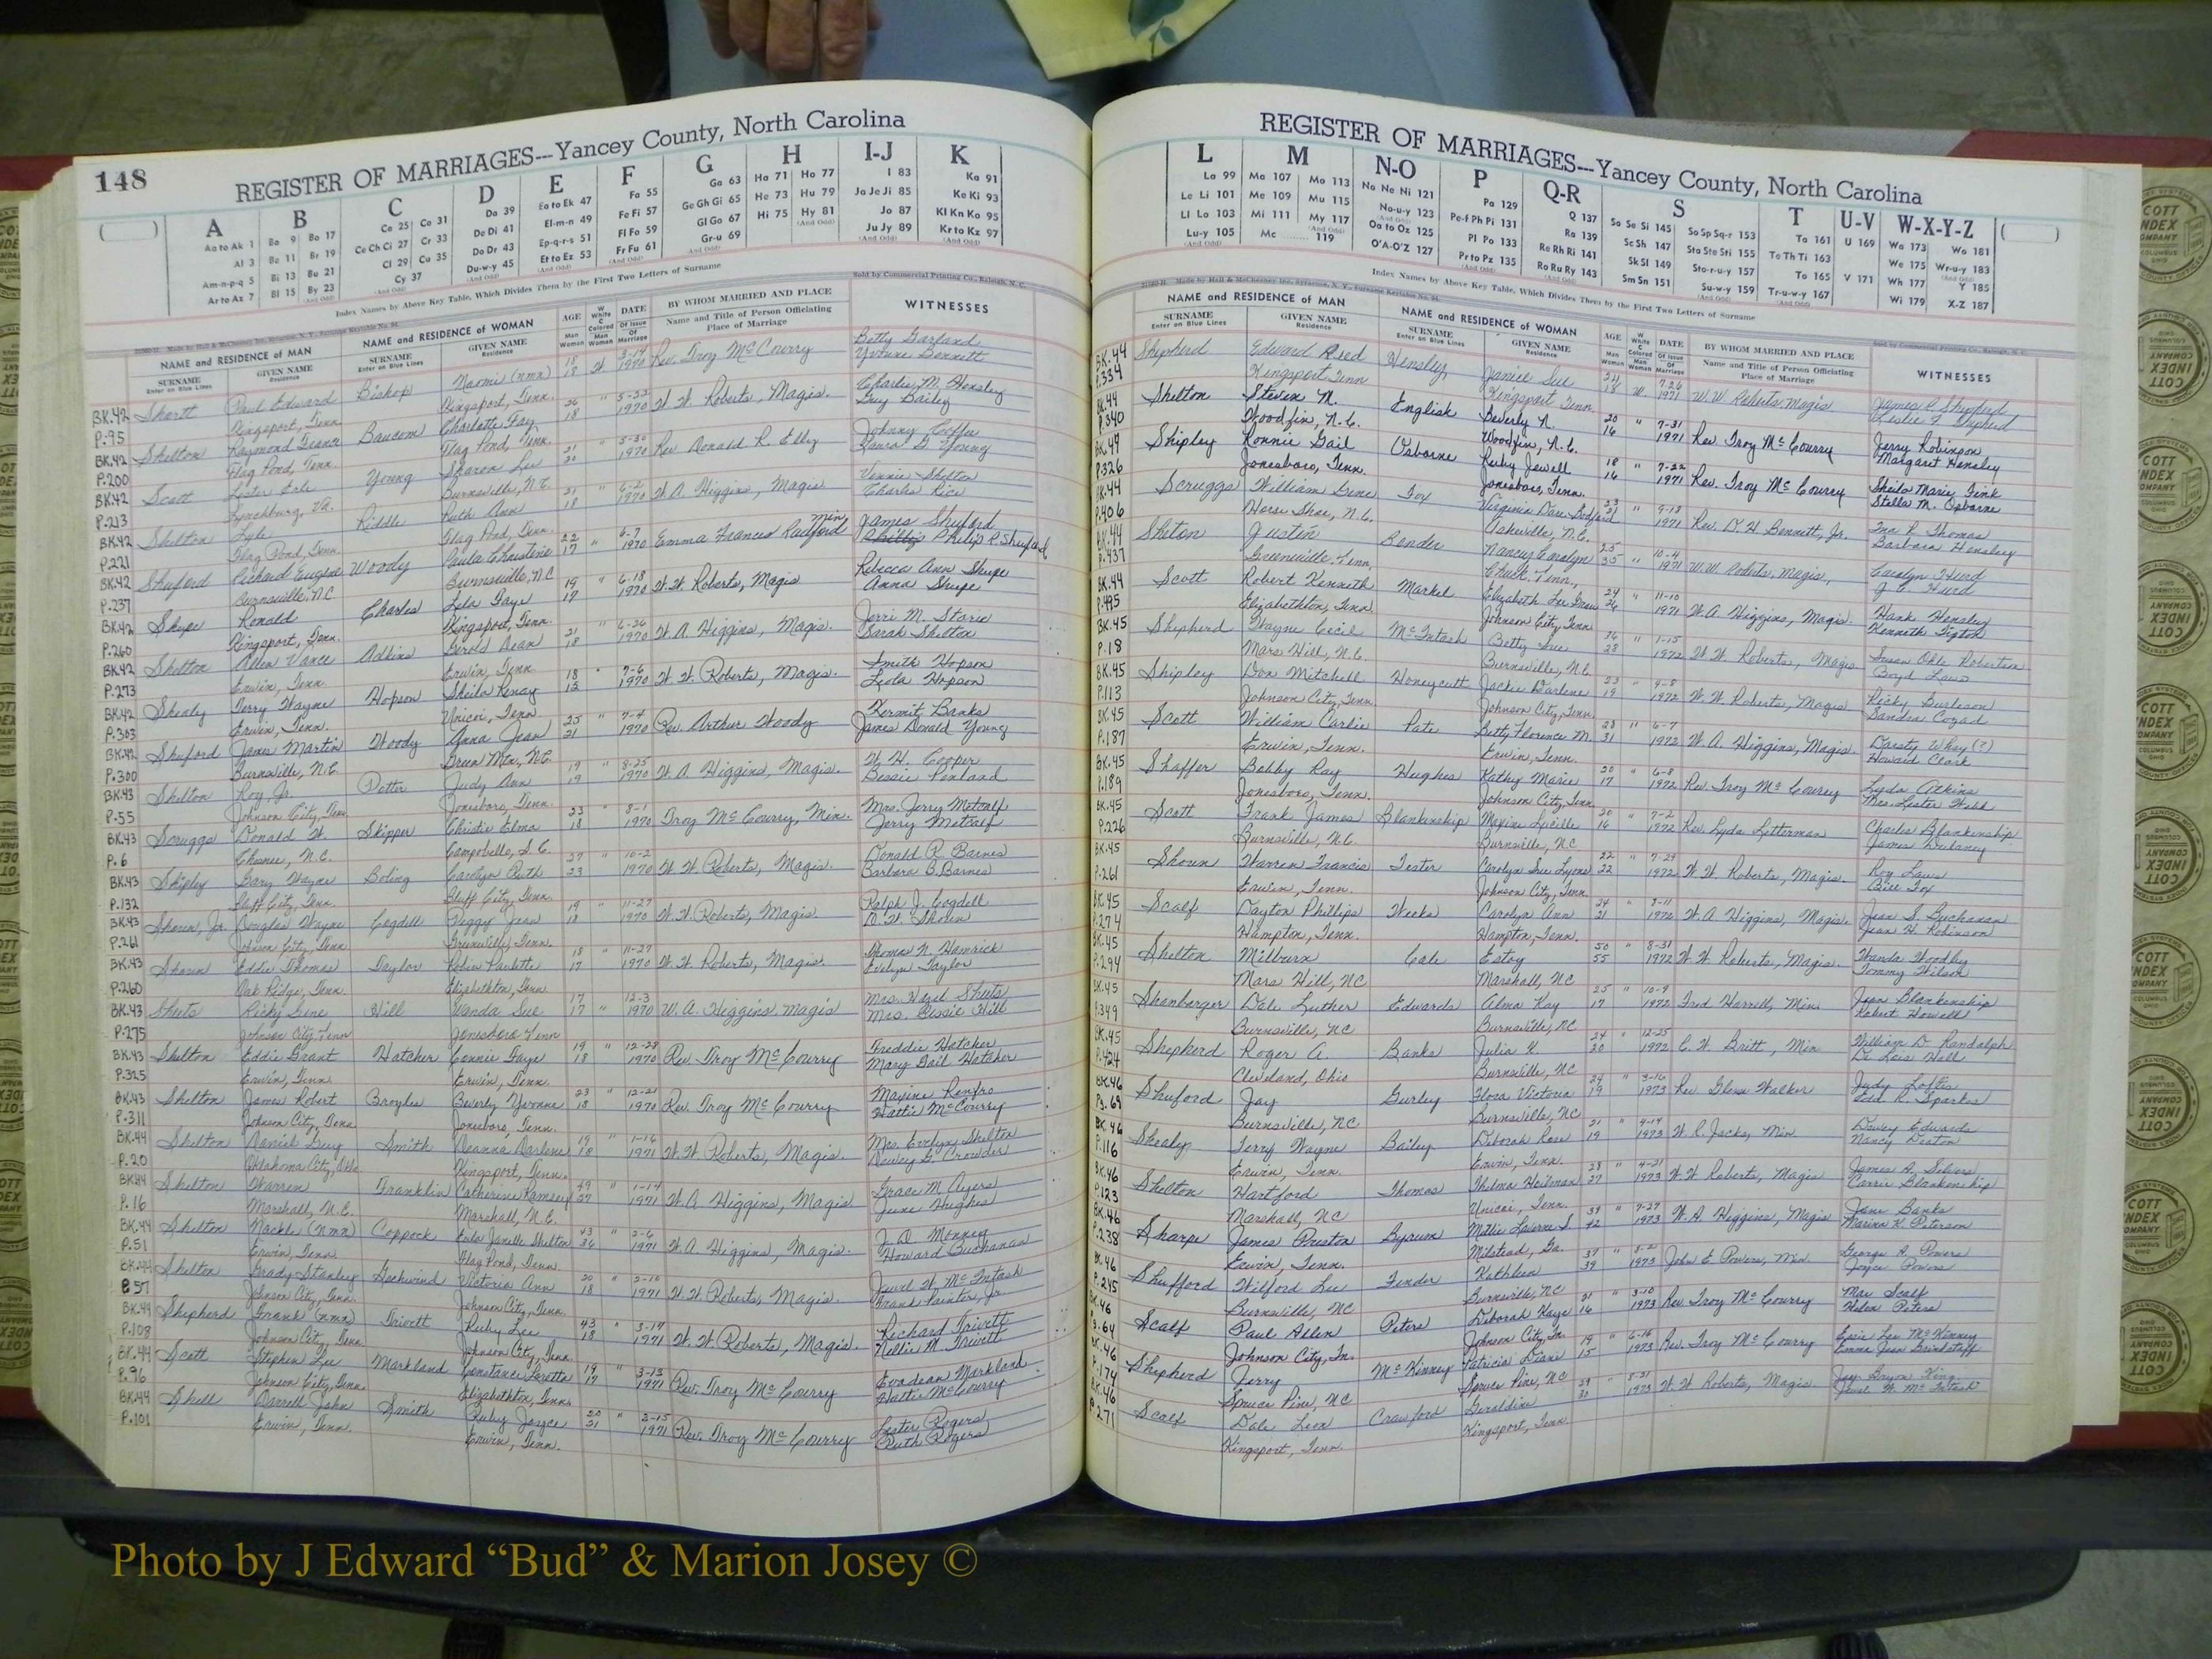 148
REGISTER OF MARRIAGES---Yancey County, North Carolina
A B C D E F G H I-J K
Aa to Ak 1 Ba 9 Bo 17 Ca 25 Co 31 Da 39 Ea to Ek 47 Fa 55 Ga 63 Ha 71 Ho 77 I 83 Ka 91
Al 3 Be 11 Br 19 Ce Ch Ci 27 Cr 33 De Di 41 El-m-n 49 Fe Fi 57 Ge Gh Gi 65 He 73 Hu 79 Ja Je Ji 85 Ke Ki 93
Am-n-p-q 5 Bi 13 Bu 21 Cl 29 Cu 35 Do Dr 43 Ep-q-r-s 51 Fl Fo 59 Gl Go 67 Hi 75 Hy 81 Jo 87 Kl Kn Ko 95
Ar to Az 7 Bl 15 By 23 Cy 37 Du-w-y 45 Et to Ez 53 Fr Fu 61 Gr-u 69 Ju Jy 89 Kr to Kz 97
Index Names by Above Key Table, Which Divides Them by the First Two Letters of Surname
Sold by Commercial Printing Co., Raleigh, N. C.
NAME and RESIDENCE OF MAN NAME and RESIDENCE OF WOMAN AGE DATE BY WHOM MARRIED AND PLACE WITNESSES
SURNAME GIVEN NAME SURNAME GIVEN NAME Name and Title of Person Officiating
Enter on Blue Lines Residence Enter on Blue Lines Residence Place of Marriage
BK.42 Shortt Paul Edward Bishop Naomi (nmn) 18 W. 1970 Rev. Troy McCourry Betty Garland
P.95 Kingsport, Tenn. Kingsport, Tenn. 18 Yvonne Bennett
BK.42 Shelton Raymond Baucom Charlotte Fay 26 " 1970 W. W. Roberts, Magis. Charlie M. Hensley
P.200 Flag Pond, Tenn. Flag Pond, Tenn. 18 Guy Bailey
BK.42 Scott Lester Young Sharon Lee 21 " 5-30 1970 Rev. Donald R. Elly Johnny
P.213 Lynchburg, Va. Burnsville, N.C. 20 Laura G. Young
BK.42 Shelton Lyle Riddle Ruth Ann 21 " 6-21 1970 W. A. Higgins, Magis. Vennie Shelton
P.221 Flag Pond, Tenn. Flag Pond, Tenn. 18 Charles Rice
BK.42 Shuford Richard Eugene Woody Paula Christine 22 " 6-7 1970 Emma Frances Radford min. James Shuford
P.237 Burnsville, NC Burnsville, NC 17 Philip R Shuford
BK.42 Shupe Ronald Charles Lela Faye 19 " 6-18 1970 W. W. Roberts, Magis Rebecca Ann Shupe
P.260 Kingsport, Tenn. Kingsport, Tenn. 17 Anna Shupe
BK.42 Shelton Allen Vance Adkins Jean 21 " 6-26 1970 W. A Higgins, Magis. Jerri M. Storie
P.273 Erwin, Tenn. Erwin, Tenn 18 Sarah Shelton
BK.42 Shealy Terry Wayne Hopson Sheila Renay 18 " 7-6 1970 W. W. Roberts, Magis. Smith Hopson
P.303 Erwin, Tenn. Unicoi, Tenn 15 Leola Hopson
BK.42 Shuford James Martin Woody Anna Jean 25 " 7-4 1970 Rev. Arthur Woody Kermit Banks
P.300 Burnsville, N.C. Green Mtn., N.C. 21 James Donald Young
BK.43 Shelton Roy, Jr. Potter Judy Ann 19 " 8-25 1970 W. A Higgins, Magis. W. H. Cooper
P.55 Johnson City, Tenn. Jonesboro, Tenn. 19 Bessie Penland
BK.43 Scruggs Donald W. Skipper Christie Elma 23 " 8-1 1970 Troy McCourry, Min. Mrs. Jerry Metcalf
P.6 Chesnee, N.C. Campobello, S.C. 18 Jerry Metcalf
BK.43 Shipley Gary Wayne Boling Carolyn Ruth 27 " 10-2 1970 W. W. Roberts, Magis. Donald R. Barnes
P.132 Bluff City, Tenn. Bluff City, Tenn. 23 Barbara B. Barnes
BK.43 Shoun, Jr. Douglas Wayne Cogdell Peggy Jean 19 " 11-27 1970 W. W. Roberts, Magis. Ralph J. Cogdell
P.261 Johnson City, Tenn Greeneville, Tenn. 18 D. W. Shoun
BK.43 Shoun Eddie Thomas Taylor Robin Paulette 18 " 11-27 1970 W. W. Roberts, Magis. Thomas N. Hamrick
P.260 Oak Ridge, Tenn. Elizabethton, Tenn 17 Evelyn Taylor
BK.43 Shuts Ricky Gene Hill Wanda Sue 17 " 12-3 1970 W. A. Higgins Magis Mrs. Hazel Shuts
P-275 Johnson City, Tenn Jonesboro Tenn 17 Mrs. Bessie Hill
BK.43 Shelton Eddie Grant Hatcher Connie Faye 19 " 12-28 1970 Rev. Troy McCourry Freddie Hatcher
P.325 Erwin, Tenn. Erwin, Tenn. 18 Mary Gail Hatcher
BK.43 Shelton James Robert Broyles Beverly Yvonne 23 " 12-21 1970 Rev. Troy McCourry Maxine Renfro
P-311 Johnson City, Tenn Jonesboro, Tenn. 18 Hattie McCourry
BK.44 Shelton Daniel Guy Smith Deanna Darlene 19 " 1-16 1971 W. W. Roberts, Magis. Mrs. Evelyn Shelton
P.20 Oklahoma City, Okla. Kingsport, Tenn. 18 Dewey G. Crowder
BK44 Shelton Warren Franklin Catherine Ramsey 49 " 1-14 1971 W. A Higgins, Magis Grace M. Ayers
P.16 Marshall, N.C. Marshall, N.C. 37 June Hughes
BK.44 Shelton Nackle (nmn) Coppock Eula Janelle Shelton 43 " 2-6 1971 W. A Higgins, Magis. J. D. Monney
P.51 Erwin, Tenn Flag Pond, Tenn 36 Howard Buchanan
BK.44 Shelton Grady Stanley Geshwind Victoria Ann 20 " 2-10 1971 W. W. Roberts, Magis. Jewel W. McIntosh
P.57 Johnson City, Tenn. Johnson City, Tenn. 18 Frank Painter, Jr
BK.44 Shepherd Frank (nmn) Trivett Ruby Lee 43 " 3-19 1971 W. W. Roberts, Magis. Richard Trivett
P.108 Johnson City, Tenn Johnson City, Tenn 18 Nellie M. Trivett
BK.44 Scott Stephen Lee Markland Constance Loretta 19 " 3-13 1971 Rev. Troy McCourry Evadean Markland
P.96 Johnson City, Tenn. Elizabethton, Tenn. 17 Hattie McCourry
BK.44 Shell Darrell John Smith Ruby Joyce 20 " 2-15 1971 Rev. Troy McCourry Lester Rogers
P.101 Erwin, Tenn. Erwin, Tenn. 21 Ruth Rogers
REGISTER OF MARRIAGES---Yancey County, North Carolina
L M N-O P Q-R S T U-V W-X-Y-Z
La 99 Ma 107 Mo 113 Na Ne Ni 121 Pa 129 Q 137 Sa Se Si 145 So Sp Sq-r 153 Ta 161 U 169 Wa 173 Wo 181
Le Li 101 Me 109 Mu 115 No-u-y 123 Pe-f Ph Pi 131 Ra 139 Sc Sh 147 Sta Ste Sti 155 Te Th Ti 163 We 175 Wr-u-y 183
Ll Lo 103 Mi 111 My 117 Oa to Oz 125 Pl Po 133 Re Rh Ri 141 Sk Sl 149 Sto-r-u-y 157 To 165 V 171 Wh 177 Y 185
Lu-y 105 Mc 119 O'A-O'Z 127 Pr to Pz 135 Ro Ru Ry 143 Sm Sn 151 Su-w-y 159 Tr-u-w-y 167 Wi 179 X-Z 187
Index Names by Above Key Table, Which Divides Them by the First Two Letters of Surname
NAME and RESIDENCE OF MAN NAME and RESIDENCE OF WOMAN AGE DATE BY WHOM MARRIED AND PLACE WITNESSES
SURNAME GIVEN NAME SURNAME GIVEN NAME Name and Title of Person Officiating
Enter on Blue Lines Residence Enter on Blue Lines Residence Place of Marriage
BK.44 Shepherd Edward Reed Hensley Janice Sue W. 7-26 1971 W. W. Roberts Magis James R Shepherd
P.334 Kingsport Tenn Kingsport Tenn. 18 Leslie F. Shepherd
BK.44 Shelton Steven M. English Beverly N. 20 " 7-31 1971 Rev. Troy McCourry Jerry Robinson
P.340 Woodfin, N.C. Woodfin, N.C. 16 Margaret Hensley
BK.44 Shipley Ronnie Gail Osborne Ruby Jewell 18 " 7-22 1971 Rev. Troy McCourry Sheila Marie Fink
P.326 Jonesboro, Tenn. Jonesboro, Tenn. 16 Stella M. Osborne
BK.44 Scruggs William Gene Foy Virginia Dare Ledford 23 " 9-18 1971 Rev. D. H Bennett, Jr. Ina R. Thomas
P.406 Horse Shoe, N.C. Asheville, N.C. 21 Barbara Hensley
BK.44 Shelton Justin Bender Nancy Carolyn 25 " 10-4 1971 W.W. Roberts, Magis, Carolyn Hurd
P.437 Greeneville, Tenn. Tenn. 35 J. C. Hurd
BK.44 Scott Robert Kenneth Markel Elizabeth Lee 24 " 11-10 1971 W. A. Higgins, Magis. Hank Hensley
P.495 Elizabethton, Tenn. Johnson City, Tenn 26 Kenneth Tipton
BK.45 Shepherd Wayne Cecil McIntosh Betty Sue 36 " 1-15 1972 W. W. Roberts, Magis Susan Robertson
P.18 Mars Hill, N.C. Burnsville, N.C. 28 Boyd Laws
BK.45 Shipley Don Mitchell Honeycutt Jackie Darlene 23 " 4-8 1972 W. W. Roberts, Magis Ricky Burleson
P.113 Johnson City, Tenn. Johnson City, Tenn. 19 Sandra Cozad
BK.45 Scott William Carlie Pate Betty Florence M. 28 " 6-7 1972 W. A. Higgins, Magis. Whay (?)
P.187 Erwin, Tenn. Erwin, Tenn. 31 Howard Clark
BK.45 Shaffer Bobby Ray Hughes Kathy Marie 20 " 6-8 1972 Rev. Troy McCourry Lyda Atkins
P.189 Jonesboro, Tenn. Johnson City, Tenn 17 Mrs. Lester Webb
BK.45 Scott Frank James Blankenship Maxine Lucille 20 " 7-2 1972 Rev. Lyda Letterman Charles Blankenship
P.226 Burnsville, N.C. Burnsville, NC 16 James Dulaney
BK.45 Shoun Warren Francis Tester Carolyn Sue Lyons 22 " 7-29 1972 W. W. Roberts, Magis. Roy Laws
P.261 Erwin, Tenn. Johnson City, Tenn. 22 Bill Fox
BK.45 Scalf Dayton Phillips Weeks Carolyn Ann 24 " 8-11 1972 W. A Higgins, Magis. Jean S. Buchanan
P.274 Hampton, Tenn. Hampton, Tenn. 21 Jean H. Robinson
BK.45 Shelton Milburn Cole Estey 50 " 8-31 1972 W. W. Roberts, Magis. Wanda Woodby
P.294 Mars Hill, NC Marshall, NC 55 Tommy Wilson
BK.45 Shanberger Dale Luther Edwards Alma Kay 25 " 10-9 1972 Fred Harrell, Min Jean Blankenship
P.349 Burnsville, NC Burnsville, NC 17 Robert Howell
BK.45 Shepherd Roger A. Banks Julia K. 24 " 12-25 1972 C. W. Britt, Min William D. Randolph
P.424 Cleveland, Ohio Burnsville, NC 20 Lois Hall
BK.46 Shuford Jay Gurley Flora Victoria " 3-16 1973 Rev. Glenn Walker Judy Loftis
Pg. 69 Burnsville, NC Burnsville, NC 19 Edd R. Sparks
BK.46 Shealy Terry Wayne Bailey Deborah Rose 21 " 4-14 1973 W. C. Jacks, Min. Dewey Edwards
P.116 Erwin, Tenn. Erwin, Tenn. 19 Nancy Deaton
BK.46 Shelton Hartford Thomas Thelma Heilman 28 " 4-21 1973 W. W. Roberts, Magis James A. Silvers
P.123 Marshall, NC Unicoi, Tenn. 27 Carrie Blankenship
BK.46 Sharpe James Preston Byrum Millie Laverne S. 39 " 7-27 1973 W. A. Higgins, Magis Jane Banks
P.238 Erwin, Tenn. Milstead, Ga. 42 Marina K. Peterson
BK.46 Shufford Wilford Lee Fender Kathleen 37 " 1973 John E Powers, Min. George A. Powers
P.245 Burnsville, NC Burnsville, NC 39 Joyce Powers
BK.46 Scalf Paul Allen Peters Deborah Kaye " 3-10 1973 Rev. Troy McCourry Mae Scalf
P.64 Johnson City, Tn. Johnson City, Tn. 16 Helen Peters
BK.46 Shepherd Jerry McKinney Patricia Diane 19 " 6-16 1973 Rev. Troy McCourry Essie Lee McKinney
P.174 Spruce Pine, NC Spruce Pine, NC 15 Emma Jean
BK.46 Scalf Dale Leon Crawford Geraldine 29 " 8-31 1973 W. W Roberts, Magis Bryan King
P.271 Kingsport, Tenn. Kingsport, Tenn. 30 Jewel W. McIntosh
Photo by J Edward “Bud” & Marion Josey ©